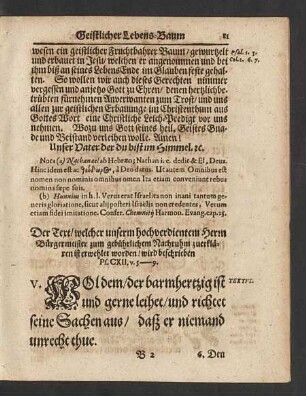 Geistlicher Lebens-Baum 11
wesen ein geistlicher Fruchtbahrer Baum / gewurtzelt
und erbauet in Jesu / welchen er angenommen und bey
ihm biß an seines Lebens Ende im Glauben feste gehal-
ten. So wollen wir auch dieses Gerechten nimmer
vergessen und anjetzo Gott zu Ehren / denen hertzlich be-
trübten fürnehmen Anverwanten zum Trost / und uns
allen zur geistlichen Erbauung / im Christenthum aus
Gottes Wort eine Christliche Leich-Predigt vor uns
nehmen. Wozu uns Gott seines heil. Geistes Gna-
de und Beistand verleihen wolle. Amen!
Psal. 1. 3.
Col. 2. 6. 7.
Unser Vater der du bist im Himmel. ꝛc.
Nota (a) Nathanael ab Hebræo; Nathan i. e. dedit & El, Deus.
Hinc idem est ac à Deo datus. Ut autem Omnibus est
nomen non nominis omnibus omen. Ita etiam conveniunt rebus
nomina sæpe suis.
(b) Hunnius in h. l. Verus erat Israëlita non inani tantum ge-
neris gloriatione, sicut alii posteri Israëlis non credentes, Verum
etiam fidei imitatione. Confer. Chemnitij Harmon. Evang. cap. 25.
Der Text / welcher unserm hochverdientem Herrn
Bürgermeister zum gebührlichem Nachruhm zu erklä-
ren ist erwehlet worden / wird beschrieben
Ps. CXII, v. 5--9.
v. 5. WOl dem / der barmhertzig ist
und gerne leihet / und richtet
seine Sachen aus / daß er niemand
unrecht thue.
TEXTUS.
B 2 6. Den